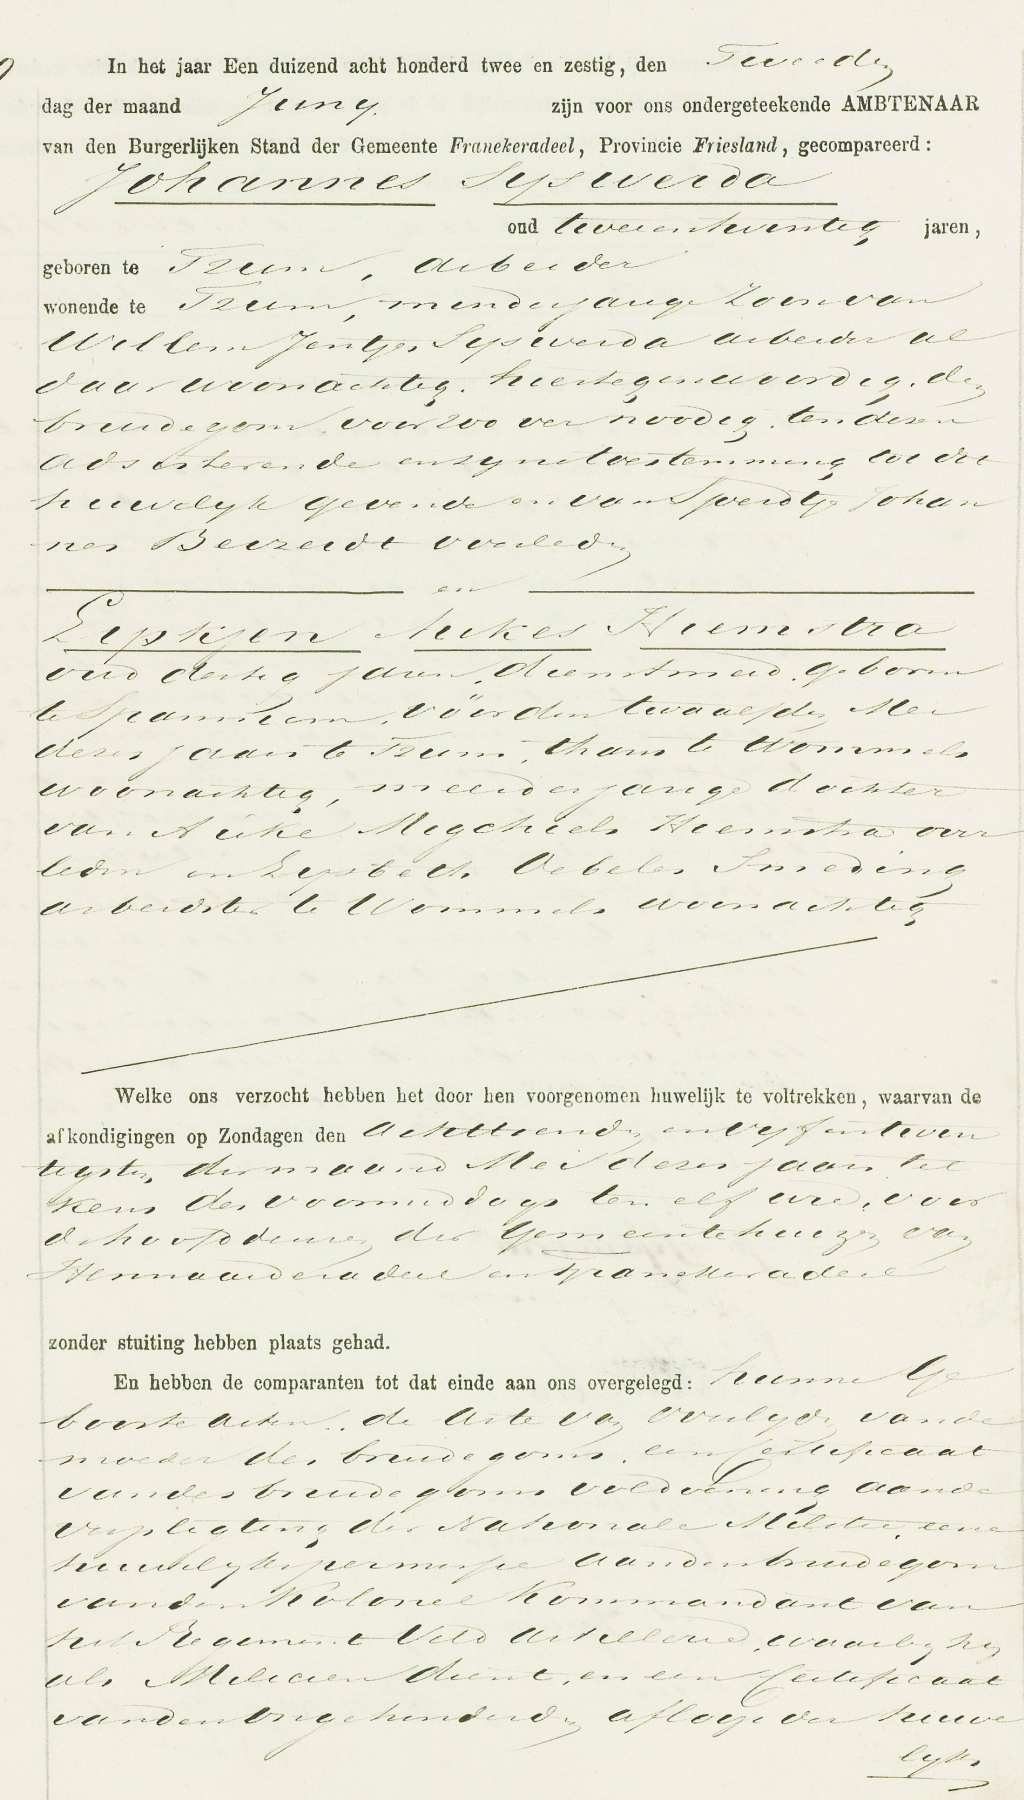 In het jaar Een duizend acht honderd twee en zestig, den Tweeden
dag der maand Juny. zijn voor ons ondergeteekende AMBTENAAR
van den Burgerlijken Stand der Gemeente Franekeradeel, Provincie Friesland, gecompareerd:
Johannes Sijswerda
oud tweeentwintig jaren,
geboren te Tzum, arbeider
wonende te Tzum, minderjarige Zoon van
Willem Jentjes Sijswerda arbeider al
daar woonachtig. hiertegenwoordig, den
bruidegom, voorzoo ver noodig, ten dezen
adsisterende en zyne toestemming tot dit
huwelyk gevende en van Sjoerdtje Johan
nes Beizerdt overleden
en
Eepkjen Aukes Hiemstra
oud dertig jaren, dienstmeid, geboren
te Spannum, vóór den twaalfden Mei
dezes jaars te Tzum, thans te Wommels
woonachtig, meerderjarige dochter
van Auke Megchiels Hiemstra over
leden en Lysbeth Oebeles Smeding
arbeidster te Wommels woonachtig
Welke ons verzocht hebben het door hen voorgenomen huwelijk te voltrekken, waarvan de
afkondigingen op Zondagen den achttienden en vyfentwin
tigsten der maand Mei dezes jaars tel
kens des voormiddags ten elf ure, voor
de hoofddeuren der Gemeentehuizen van
Hennaarderadeel en Franekeradeel
zonder stuiting hebben plaats gehad.
En hebben de comparanten tot dat einde aan ons overgelegd: hunne Ge
boorte akten, de akte van overlyden van de
moeder des bruidegoms, een Certificaat
van des bruidegoms voldoening aan de
verpligting der Nationale Militie, eene
huwelyks permissie aan den bruidegom
van den Kolonel Kommandant van
het Regiment Veld Artillerie, waarby hy
als Milicien dient, en een Certificaat
van den ongehinderden afloop der huwe
lyks